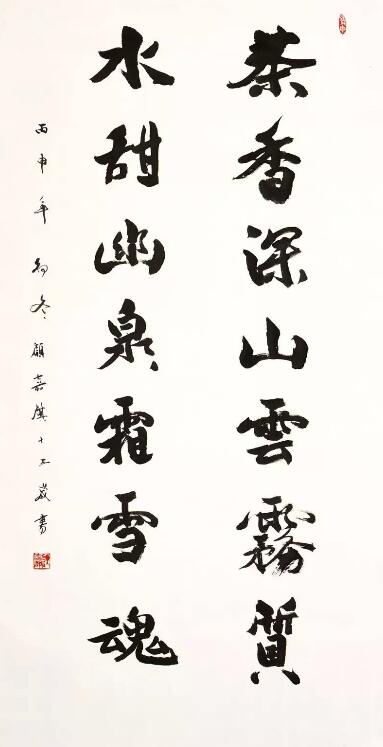 茶香深山雲霧質
水甜幽泉霜雪魂
丙申年初冬顧嘉旗十五歲書